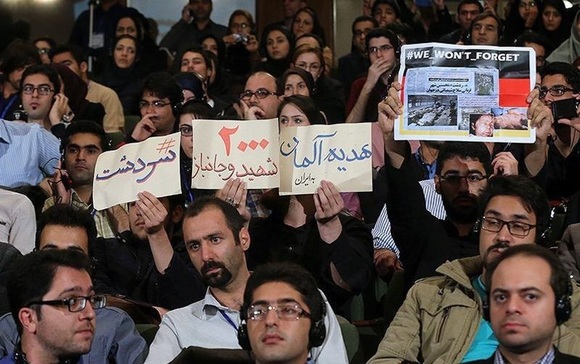 #WE_WON'T_FORGET
هدیه آلمان
به ایران
۲۰۰۰
شهید و جانباز
#سردشت